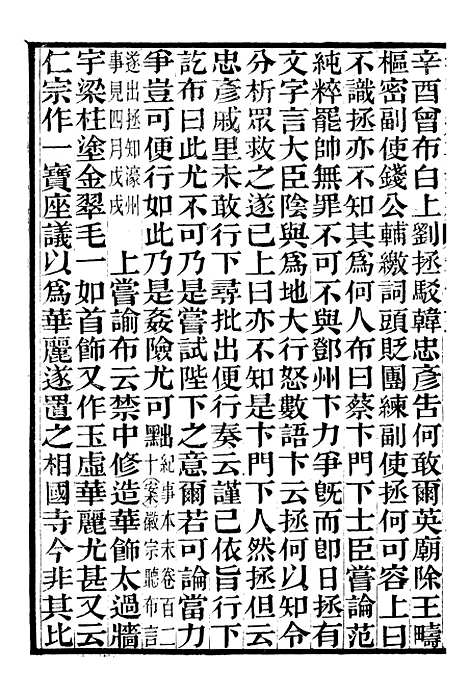 辛酉曾布白上劉拯駮韓忠彥告何敢爾英廟除王疇
樞密副使錢公輔繳詞頭貶團練副使拯何可容上曰
不識拯亦不知其爲何人布曰蔡卞門下士臣嘗論范
純粹罷帥無罪不可不與鄧州卞力爭旣而卽日拯有
文字言大臣陰與爲地大行怒數語卞云拯何以知令
分析眾救之遂已上曰亦不知是卞門下人然拯但云
忠彥戚里未敢行下尋批出便行奏云謹已依旨行下
訖布曰此尤不可乃是嘗試陛下之意爾若可論當力
爭豈可便行如此乃是姦險尤可黜出紀事本末卷百二十案徽宗聽布言
遂出拯知濠州事見四月戊戌　上嘗諭布云禁中修造華飾太過牆
宇梁柱塗金翠毛一如首飾又作玉虛華麗尤甚又云
仁宗作一寶座議以爲華麗遂置之相國寺今非其比